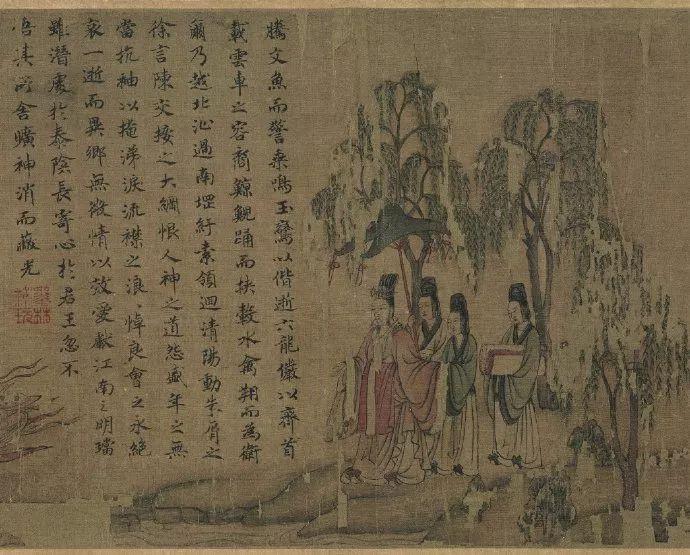 騰文魚而警乘鳴玉鸞以偕逝六龍儼以齊首
載雲車之容裔鯨鯢踴而挾轂水禽翔而為衛
爾乃越北沚過南堽紆素領迴清陽動朱脣之
徐言陳交接之大綱恨人神之道怨盛年之無
當抗袖以掩涕淚流襟之浪悼良會之永絕
哀一逝而異鄉無微情以效愛獻江南之明璫
雖潛處於泰陰長寄心於君王忽不
悟其所舍曠神消而蔽光